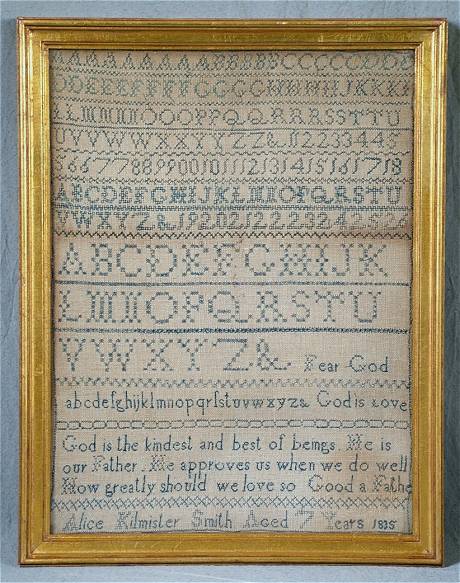 AAAAAAAAABBBBBCCCCCDDDD
DDEEEEFFFFFGGGGHHHHIJKKKK
LLMMNNOOOPPQQRRRSSTTUU
UVVWWWXXYYZZ&112233445
5667788990010111213141516171 8
ABCDEFGHIJKLMNOPQRSTU
VWXYZ&192021222324
ABCDEFGHIJK
LMNOPQRSTU
VWXYZ& Fear God
abcdefghijklmnopqrſstuvwxyz& God is Love
God is the kindest and best of beings. He is
our Father. He approves us when we do well
How greatly should we love so Good a Fathe
Alice Kilmister Smith Aged 7 Years 1835